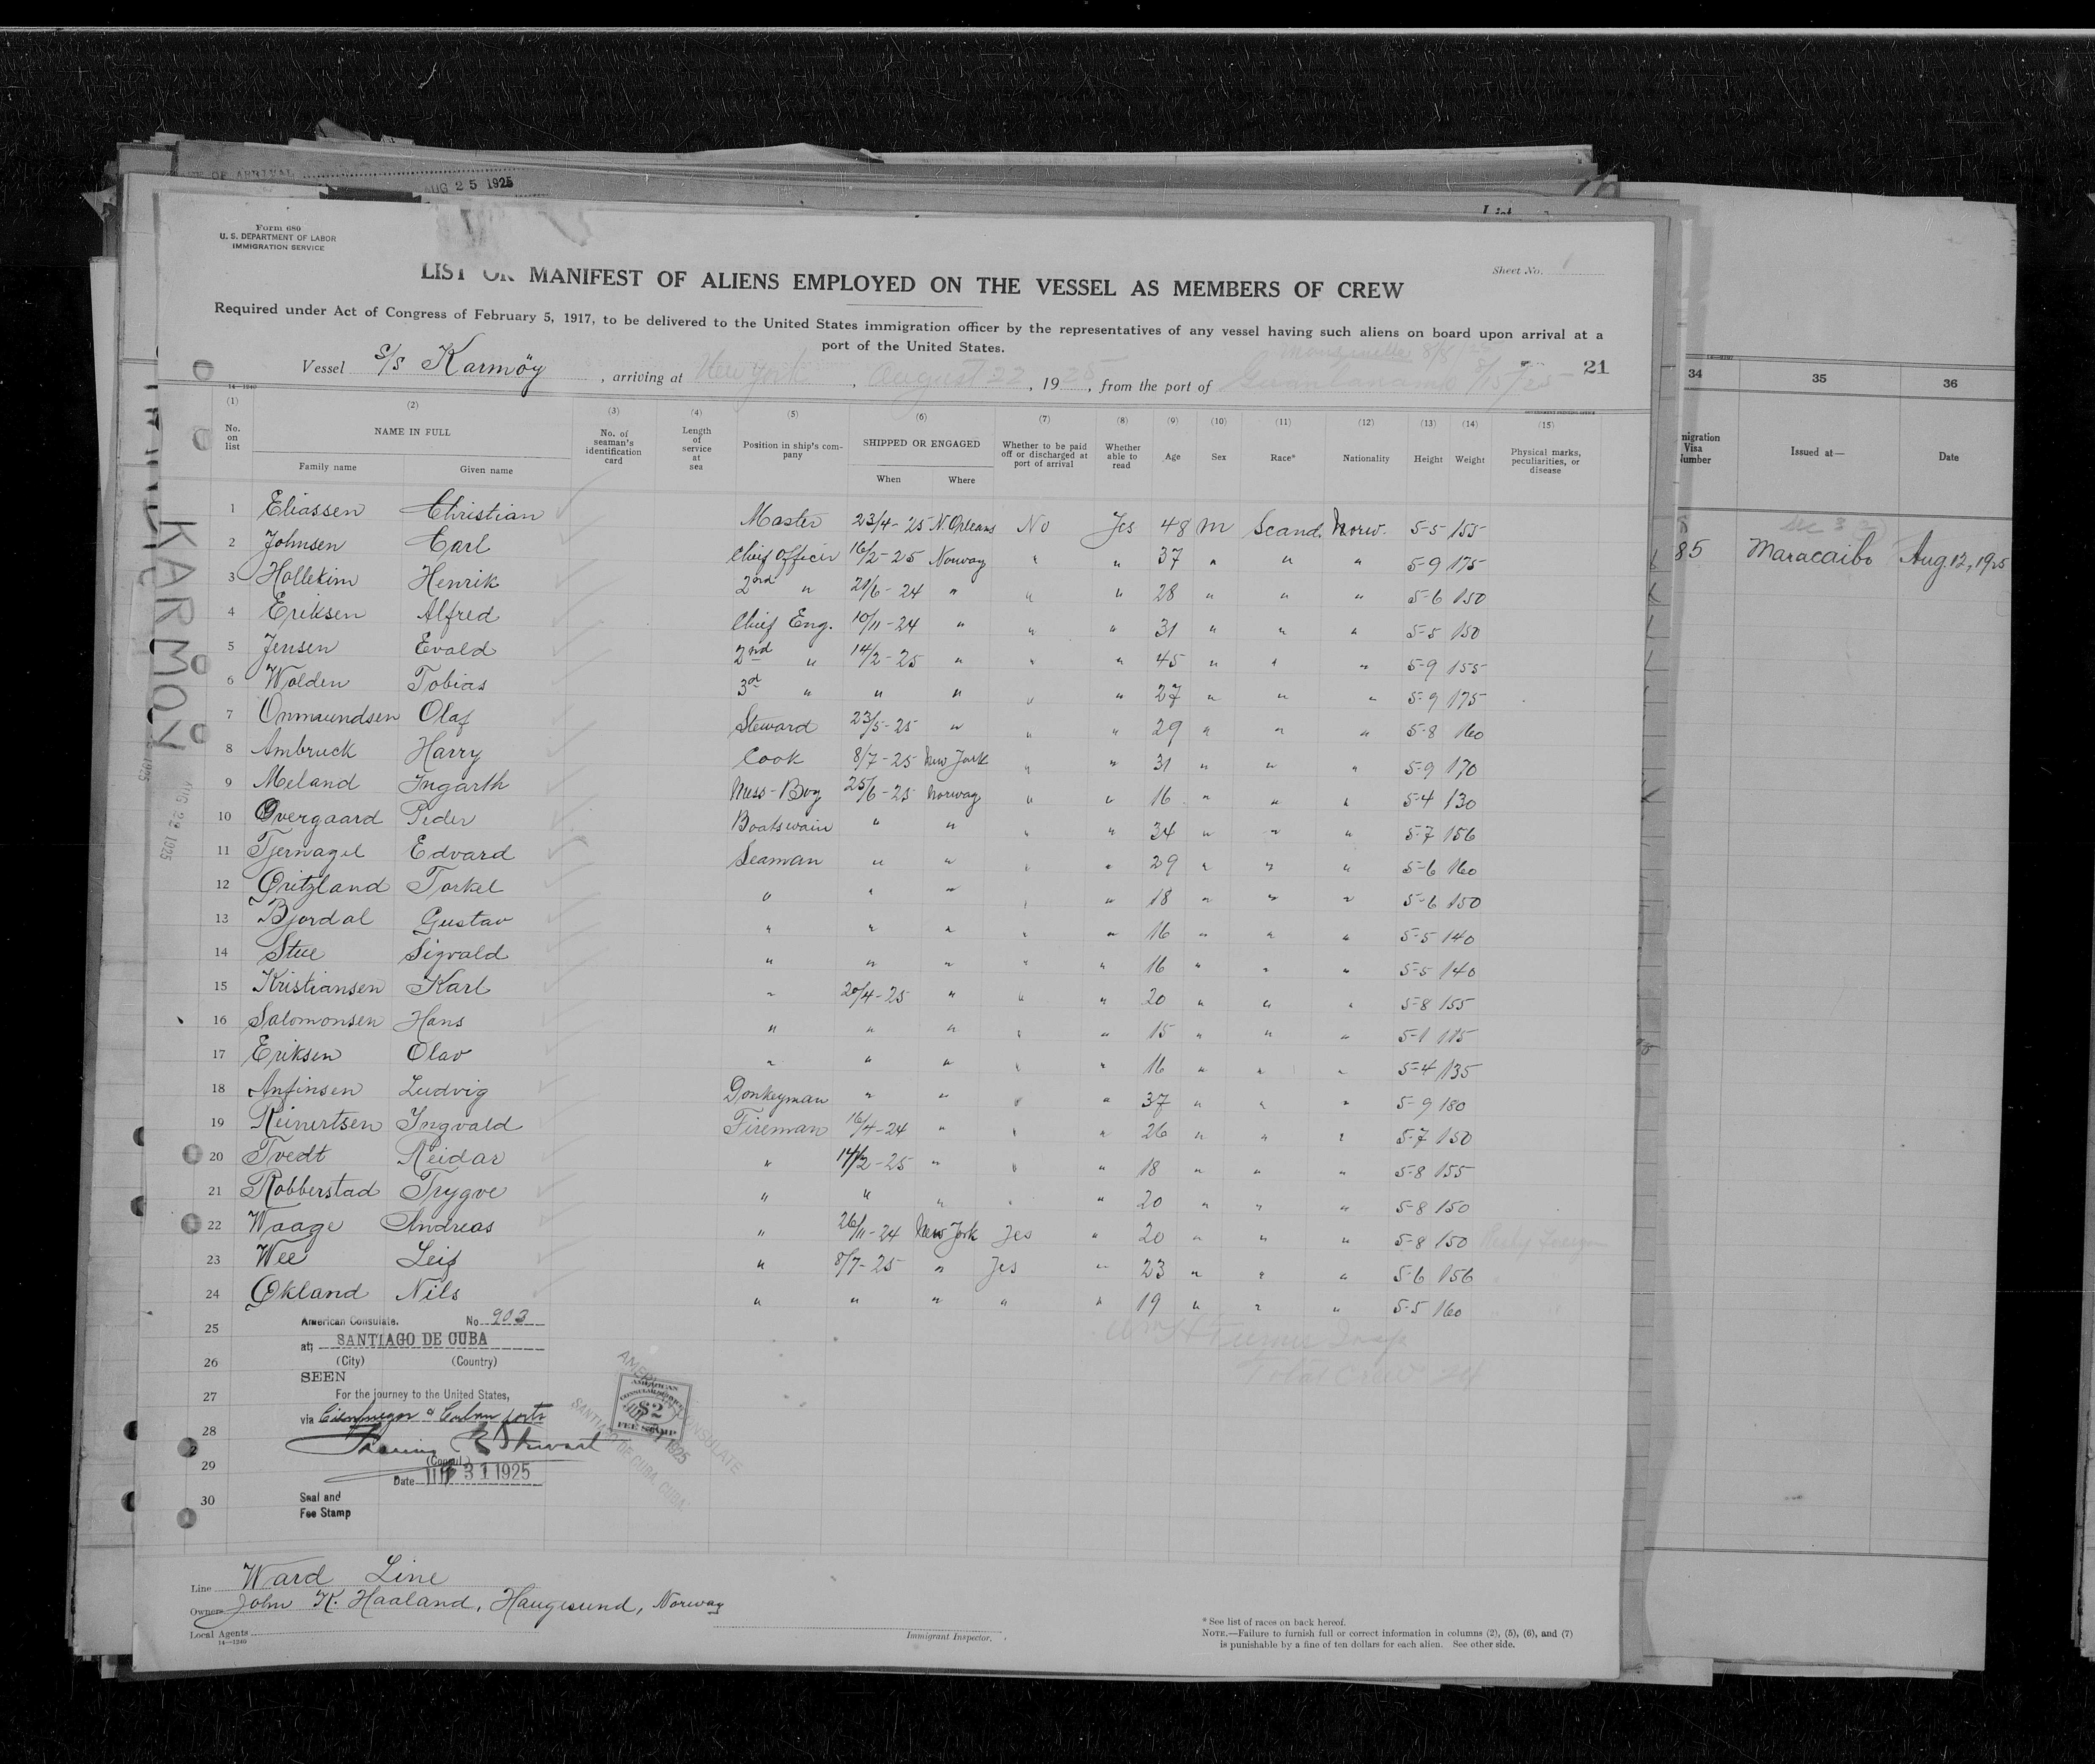 DATE OF ARRIVAL AUG 25 1925
Form 680
U. S. DEPARTMENT OF LABOR
IMMIGRATION SERVICE
Sheet No. 1
LIST OR MANIFEST OF ALIENS EMPLOYED ON THE VESSEL AS MEMBERS OF CREW
Required under Act of Congress of February 5, 1917, to be delivered to the United States immigration officer by the representatives of any vessel having such aliens on board upon arrival at a
port of the United States.
21
Vessel S/S Karmöy, arriving at New York, August 22, 1925, from the port of Guantanamo 8/15/25
14—1240
(1) (2) (3) (4) (5) (6) (7) (8) (9) (10) (11) (12) (13) (14) (15)
No. on list NAME IN FULL Family name Given name No. of seaman's identification card Length of service at sea Position in ship's company SHIPPED OR ENGAGED When Where Whether to be paid off or discharged at port of arrival Whether able to read Age Sex Race* Nationality Height Weight Physical marks, peculiarities, or disease
1 Eliassen Christian Master 23/4-25 N. Orleans No Yes 48 M Scand. Norw. 5-5 155
2 Johnsen Carl Chief Officer 16/2-25 Norway " " 37 " " " 5-9 175
3 Hollekim Henrik 2nd " 21/6-24 " " " 28 " " " 5-6 150
4 Eriksen Alfred Chief Eng. 10/11-24 " " " 31 " " " 5-5 150
5 Jensen Evald 2nd " 14/2-25 " " " 45 " " " 5-9 155
6 Wolden Tobias 3d " " " " " 27 " " " 5-9 175
7 Ommundsen Olaf Steward 23/5-25 " " " 29 " " " 5-8 160
8 Ambruck Harry Cook 8/7-25 New York " " 31 " " " 5-9 170
9 Meland Ingarth Mess-Boy 25/6-25 Norway " " 16 " " " 5-4 130
10 Overgaard Peder Boatswain " " " " 34 " " " 5-7 156
11 Tjernagel Edvard Seaman " " " " 29 " " " 5-6 160
12 Gritzland Torkel " " " " " 18 " " " 5-6 150
13 Bjordal Gustav " " " " " 16 " " " 5-5 140
14 Stue Sigvald " " " " " 16 " " " 5-5 140
15 Kristiansen Karl " 20/4-25 " " " 20 " " " 5-8 155
16 Salomonsen Hans " " " " " 15 " " " 5-1 115
17 Eriksen Olav " " " " " 16 " " " 5-4 135
18 Anfinsen Ludvig Donkeyman " " " " 37 " " " 5-9 180
19 Reinertsen Ingvald Fireman 16/4-24 " " " 26 " " " 5-7 150
20 Tvedt Reidar " 14/2-25 " " " 18 " " " 5-8 155
21 Robberstad Trygve " " " " " 20 " " " 5-8 150
22 Waage Andreas " 26/11-24 New York Yes " 20 " " " 5-8 150
23 Wee Leif " 8/7-25 " Yes " 23 " " " 5-6 156
24 Økland Nils " " " " " 19 " " " 5-5 160
25
26
27
28
29
30
Total crew 24
American Consulate. No 903
at; SANTIAGO DE CUBA
(City) (Country)
SEEN
For the journey to the United States,
via Cienfuegos & Cuban ports
(Consul)
Date 31 1925
Seal and
Fee Stamp
AMERICAN
CONSULAR SERVICE
$2
FEE STAMP
AMERICAN CONSULATE
SANTIAGO DE CUBA, CUBA
1925
KARMOY
AUG 22 1925
Line Ward Line
Owners John K. Haaland, Haugesund, Norway
Local Agents
14—1240
Immigrant Inspector.
* See list of races on back hereof.
NOTE.—Failure to furnish full or correct information in columns (2), (5), (6), and (7)
is punishable by a fine of ten dollars for each alien. See other side.
34 35 36
Visa Issued at— Date
85 Maracaibo Aug. 12, 1925